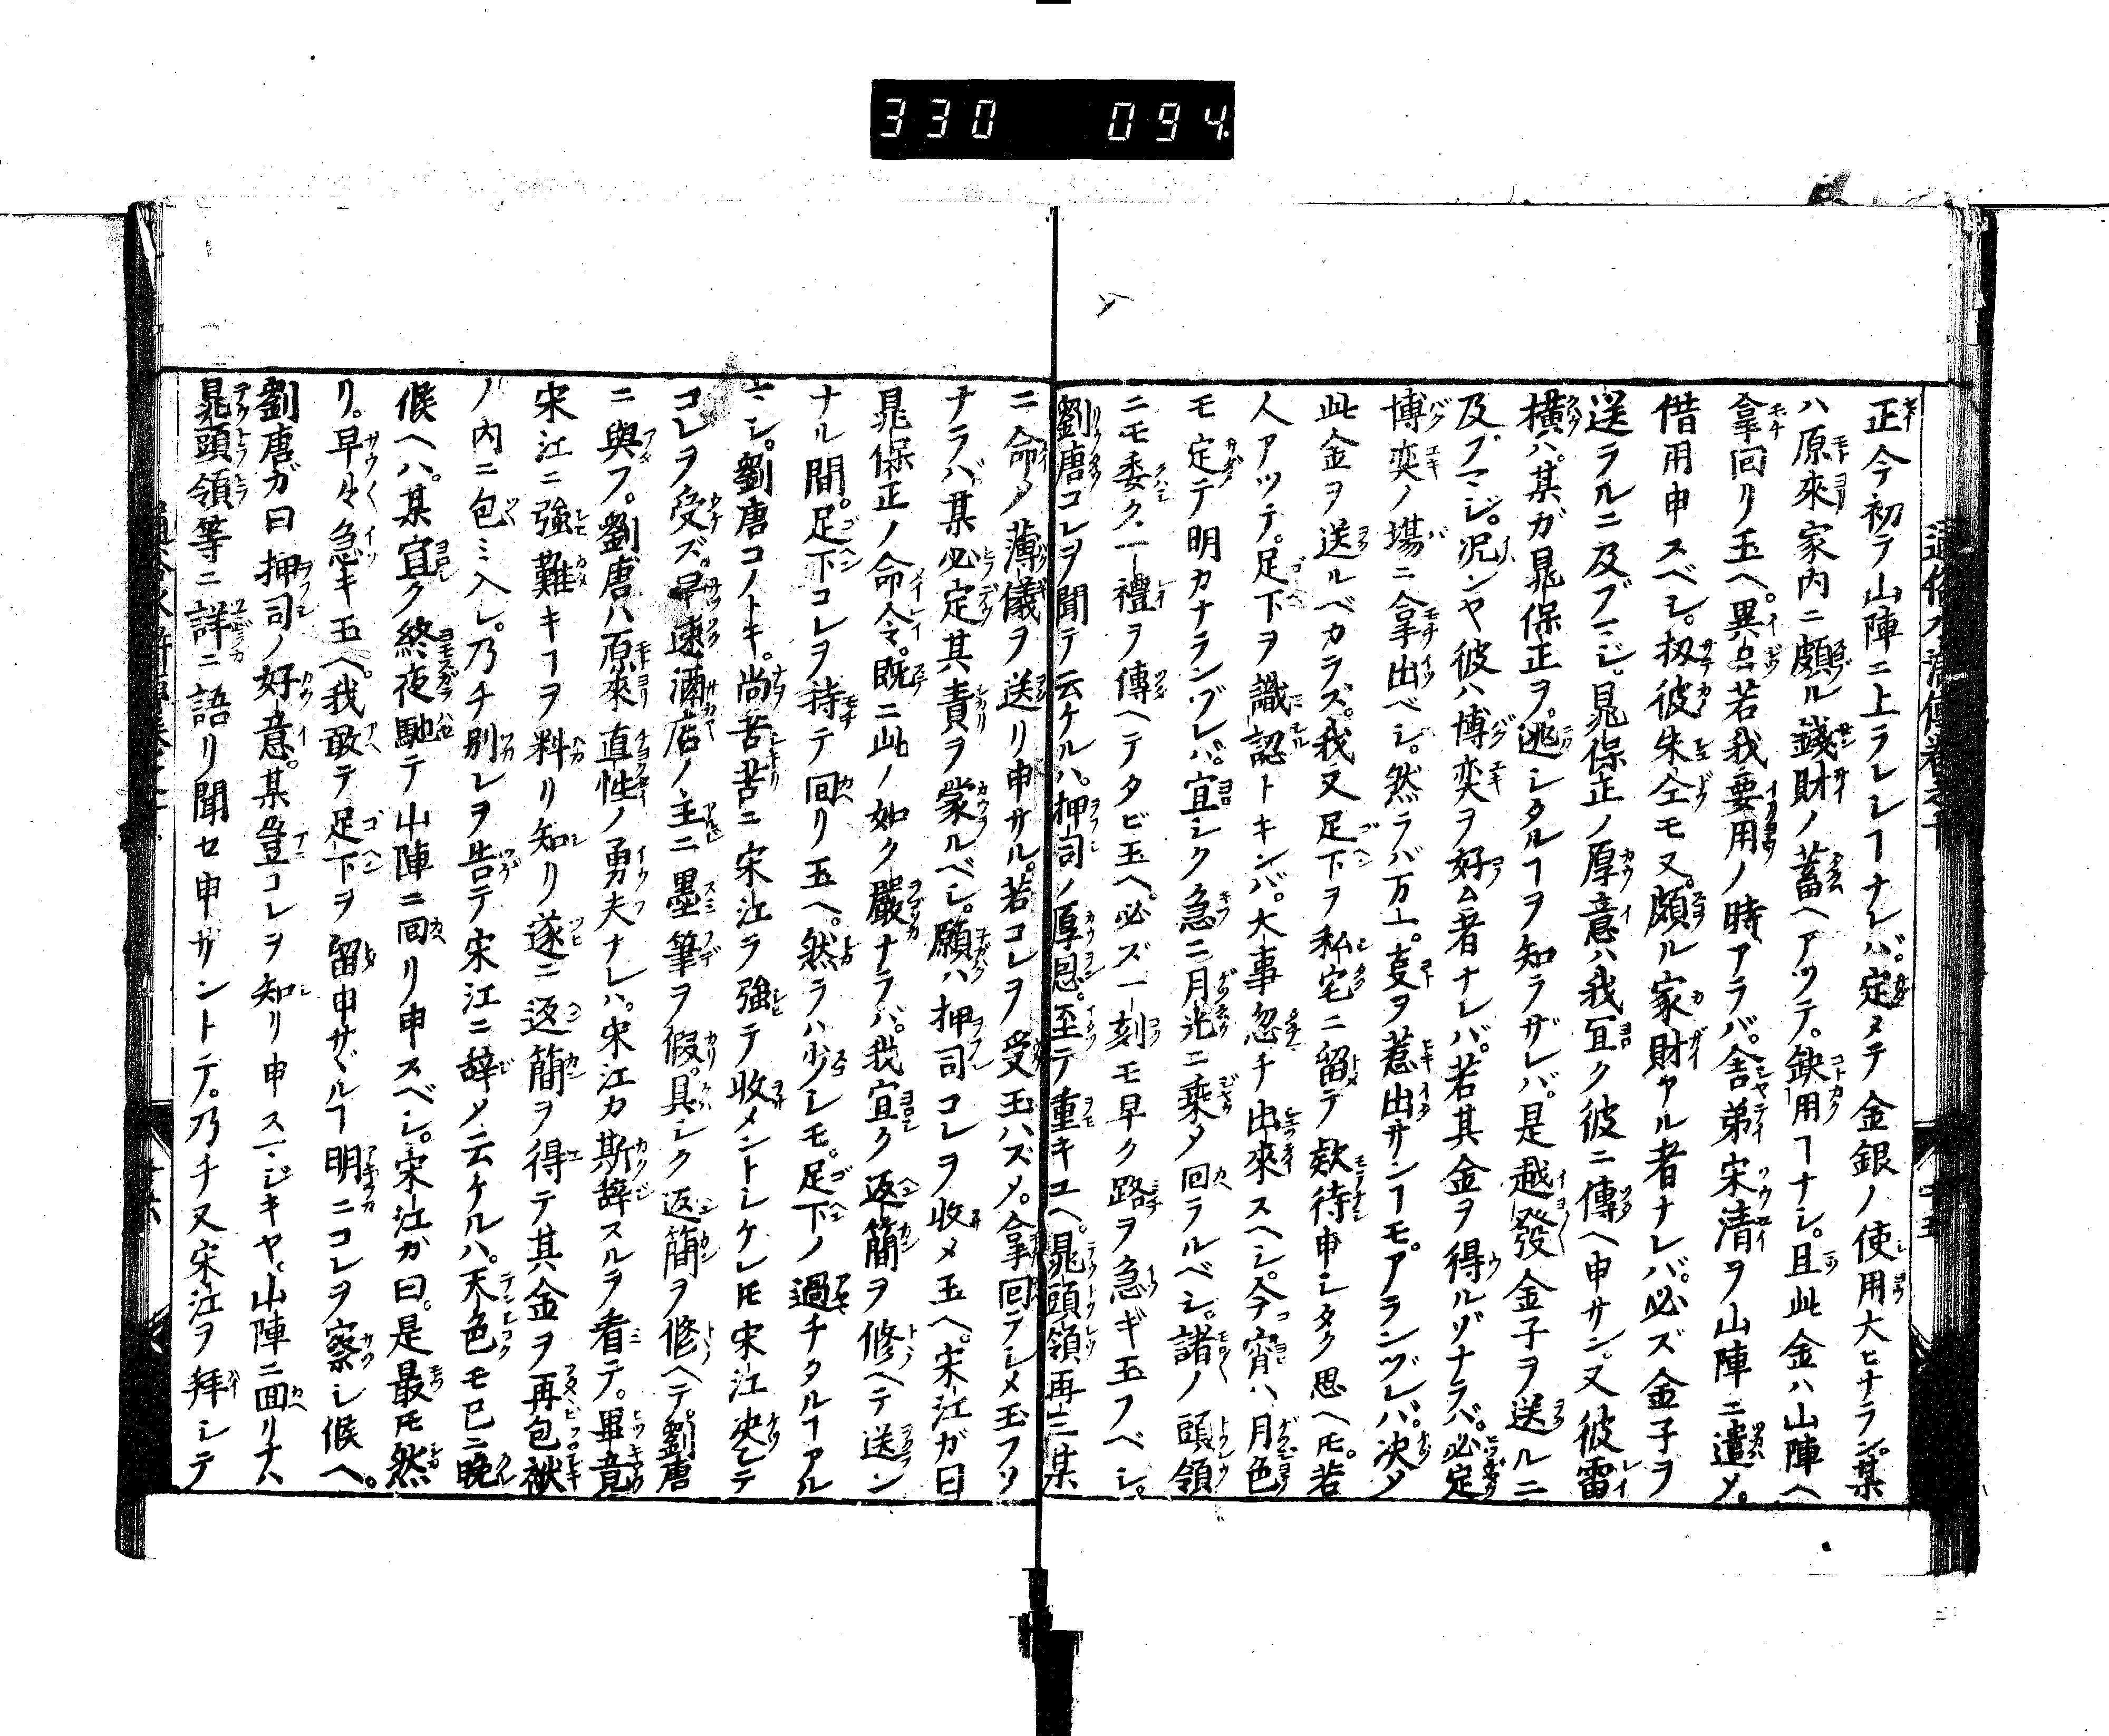 330 094.
正今初テ山陣ニ上ラレシヿナレバ。定メテ金銀ノ使用大ヒナラン。某
ハ原來家内ニ頗ル錢財ノ蓄ヘアツテ。缺用ヿナシ。且此金ハ山陣ヘ
拿回リ玉ヘ。異日若我要用ノ時アラバ。舎弟宋清ヲ山陣ニ遣メ。
借用申スベシ。扨彼朱仝モ又。頗ル家財アル者ナレバ必ズ金子ヲ
送ラルニ及ブマジ。晁保正ノ厚意ハ我宜ク彼ニ傳ヘ申サン。又彼雷
横ハ。某ガ晁保正ヲ。逃シタルヿヲ知ラザレバ。是越發金子ヲ送ルニ
及ブマジ。况ンヤ彼ハ博奕ヲ好ム者ナレバ。若其金ヲ得ルヅナラバ。必定
博奕ノ場ニ拿出ベシ。然ラバ万一。叓ヲ惹出サンヿモ。アランヅレバ。决メ
此金ヲ送ルベカラズ。我又足下ヲ私宅ニ留テ欵待申シタク思ヘ𪜈。若
人アツテ。足下ヲ識認トキンバ。大事忽チ出來スヘシ。今宵ハ月色
モ定テ明カナランヅレバ。宜シク急ニ月光ニ乗メ回ラルベシ。諸ノ頭領
ニモ委ク一禮ヲ傳ヘテタビ玉ヘ。必ズ一刻モ早ク路ヲ急ギ玉フベシ。
劉唐コレヲ聞テ云ケルハ。押司ノ厚恩。至テ重キユヘ。晁頭領再三某
ニ命メ薄儀ヲ送リ申サル。若コレヲ受玉ハズメ。拿回ラシメ玉フツ
ナラバ某必定其責ヲ蒙ルベシ。願ハ押司コレヲ收メ玉ヘ。宋江ガ曰
晁保正ノ命令。既ニ此ノ如ク嚴ナラバ。我宜ク返簡ヲ修ヘテ送ン
ナル間。足下コレヲ持テ回リ玉ヘ。然ラハ少シモ。足下ノ過チタルヿアル
マシ。劉唐コノトキ。尚苦苦ニ宋江ラ強テ收メントシケレ𪜈宋江决乄テ
コレヲ受ズ。早速酒店ノ主ニ墨筆ヲ假。具シク返簡ヲ修ヘテ。劉唐
ニ與フ。劉唐ハ原來直性ノ勇夫ナレハ。宋江カ斯辞スルヲ看テ。畢竟
宋江ニ強難キヿヲ料リ知リ遂ニ返簡ヲ得テ其金ヲ再包袱
ノ内ニ包ミ入レ。乃チ別レヲ告テ宋江ニ辞メ云ケルハ。天色モ已ニ晩
候ヘハ。某宜ク終夜馳テ山陣ニ回リ申スベシ。宋江ガ曰。是最𪜈然
リ。早々急キ玉ヘ。我敢テ足下ヲ留申サヾルヿ明ニコレヲ察シ候ヘ。
劉唐ガ曰押司ノ好意。某豈コレヲ知リ申スマジキヤ。山陣ニ回リナハ
晁頭領等ニ詳ニ語リ聞セ申サントテ。乃チ又宋江ヲ拜シテ